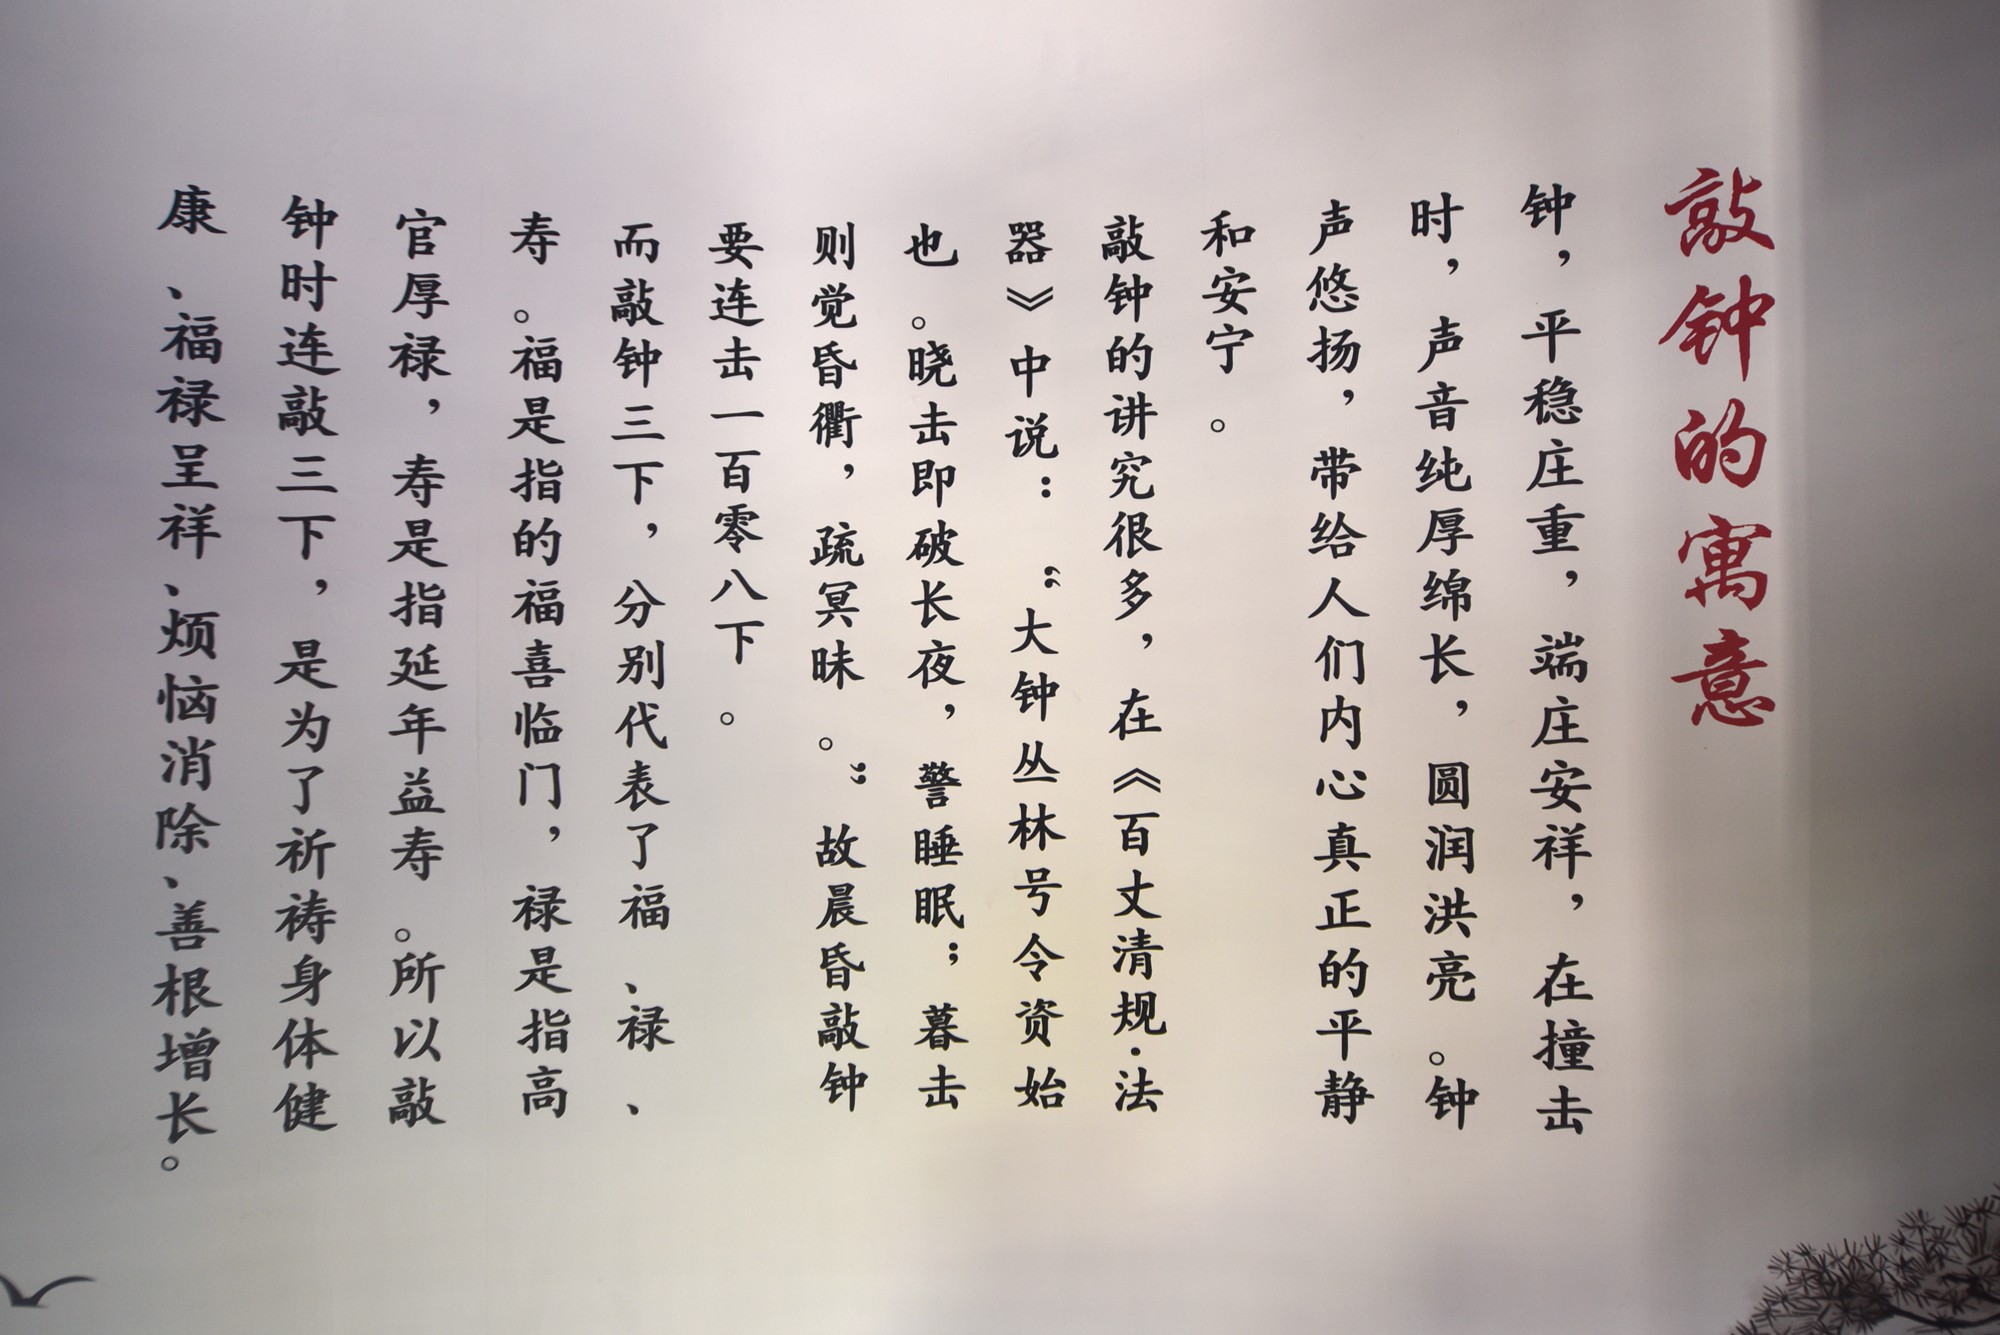 敲钟的寓意
钟，平稳庄重，端庄安祥，在撞击
时，声音纯厚绵长，圆润洪亮。钟
声悠扬，带给人们内心真正的平静
和安宁。
敲钟的讲究很多，在《百丈清规·法
器》中说：“大钟丛林号令资始
也。晓击即破长夜，警睡眠；暮击
则觉昏衢，疏冥昧。”故晨昏敲钟
要连击一百零八下。
而敲钟三下，分别代表了福、禄、
寿。福是指的福喜临门，禄是指高
官厚禄，寿是指延年益寿。所以敲
钟时连敲三下，是为了祈祷身体健
康、福禄呈祥、烦恼消除、善根增长。